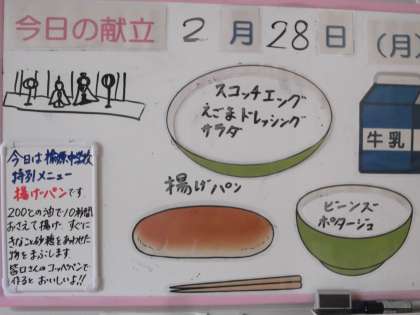 今日の献立 2月28日(月)
スコッチエッグ
えごまドレッシング
サラダ
牛乳
揚げパン
ビーンズ
ポタージュ
今日は檜原中学校
特別メニュー
揚げパンです
200℃の油で10秒間
おさえて揚げ、すぐに
きなこと砂糖をあわせた
物をまぶします
皆口さんのコッペパンで
作ると おいしいよ!!